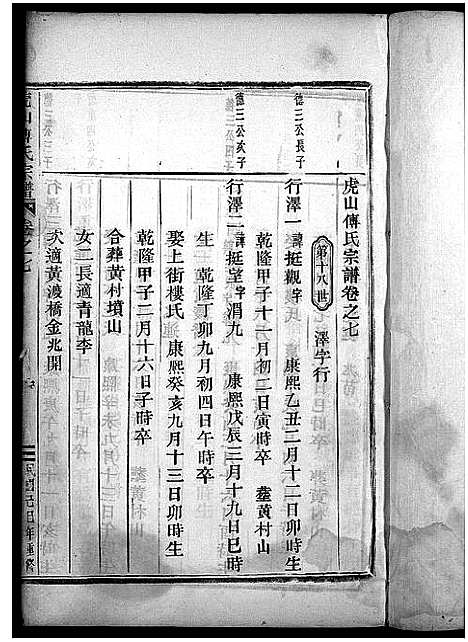 虎山傅氏宗譜卷之七
第十八世 澤字行
德三公長子
行澤一諱挺觀字 康熙乙丑二月十二日卯時生
乾隆甲子十一月初二日寅時卒 塟黃村山
德三公次子
行澤二諱挺望字渭九 康熙戊辰三月十九日巳時
生 乾隆丁卯九月初四日午時卒
娶上街樓氏 康熙癸亥九月十三日卯時生
乾隆甲子二月十六日子時卒
合葬黃村墳山
女二長適青龍李
次適黃渡橋金兆開
虎山傅氏宗譜 卷之七
年重修